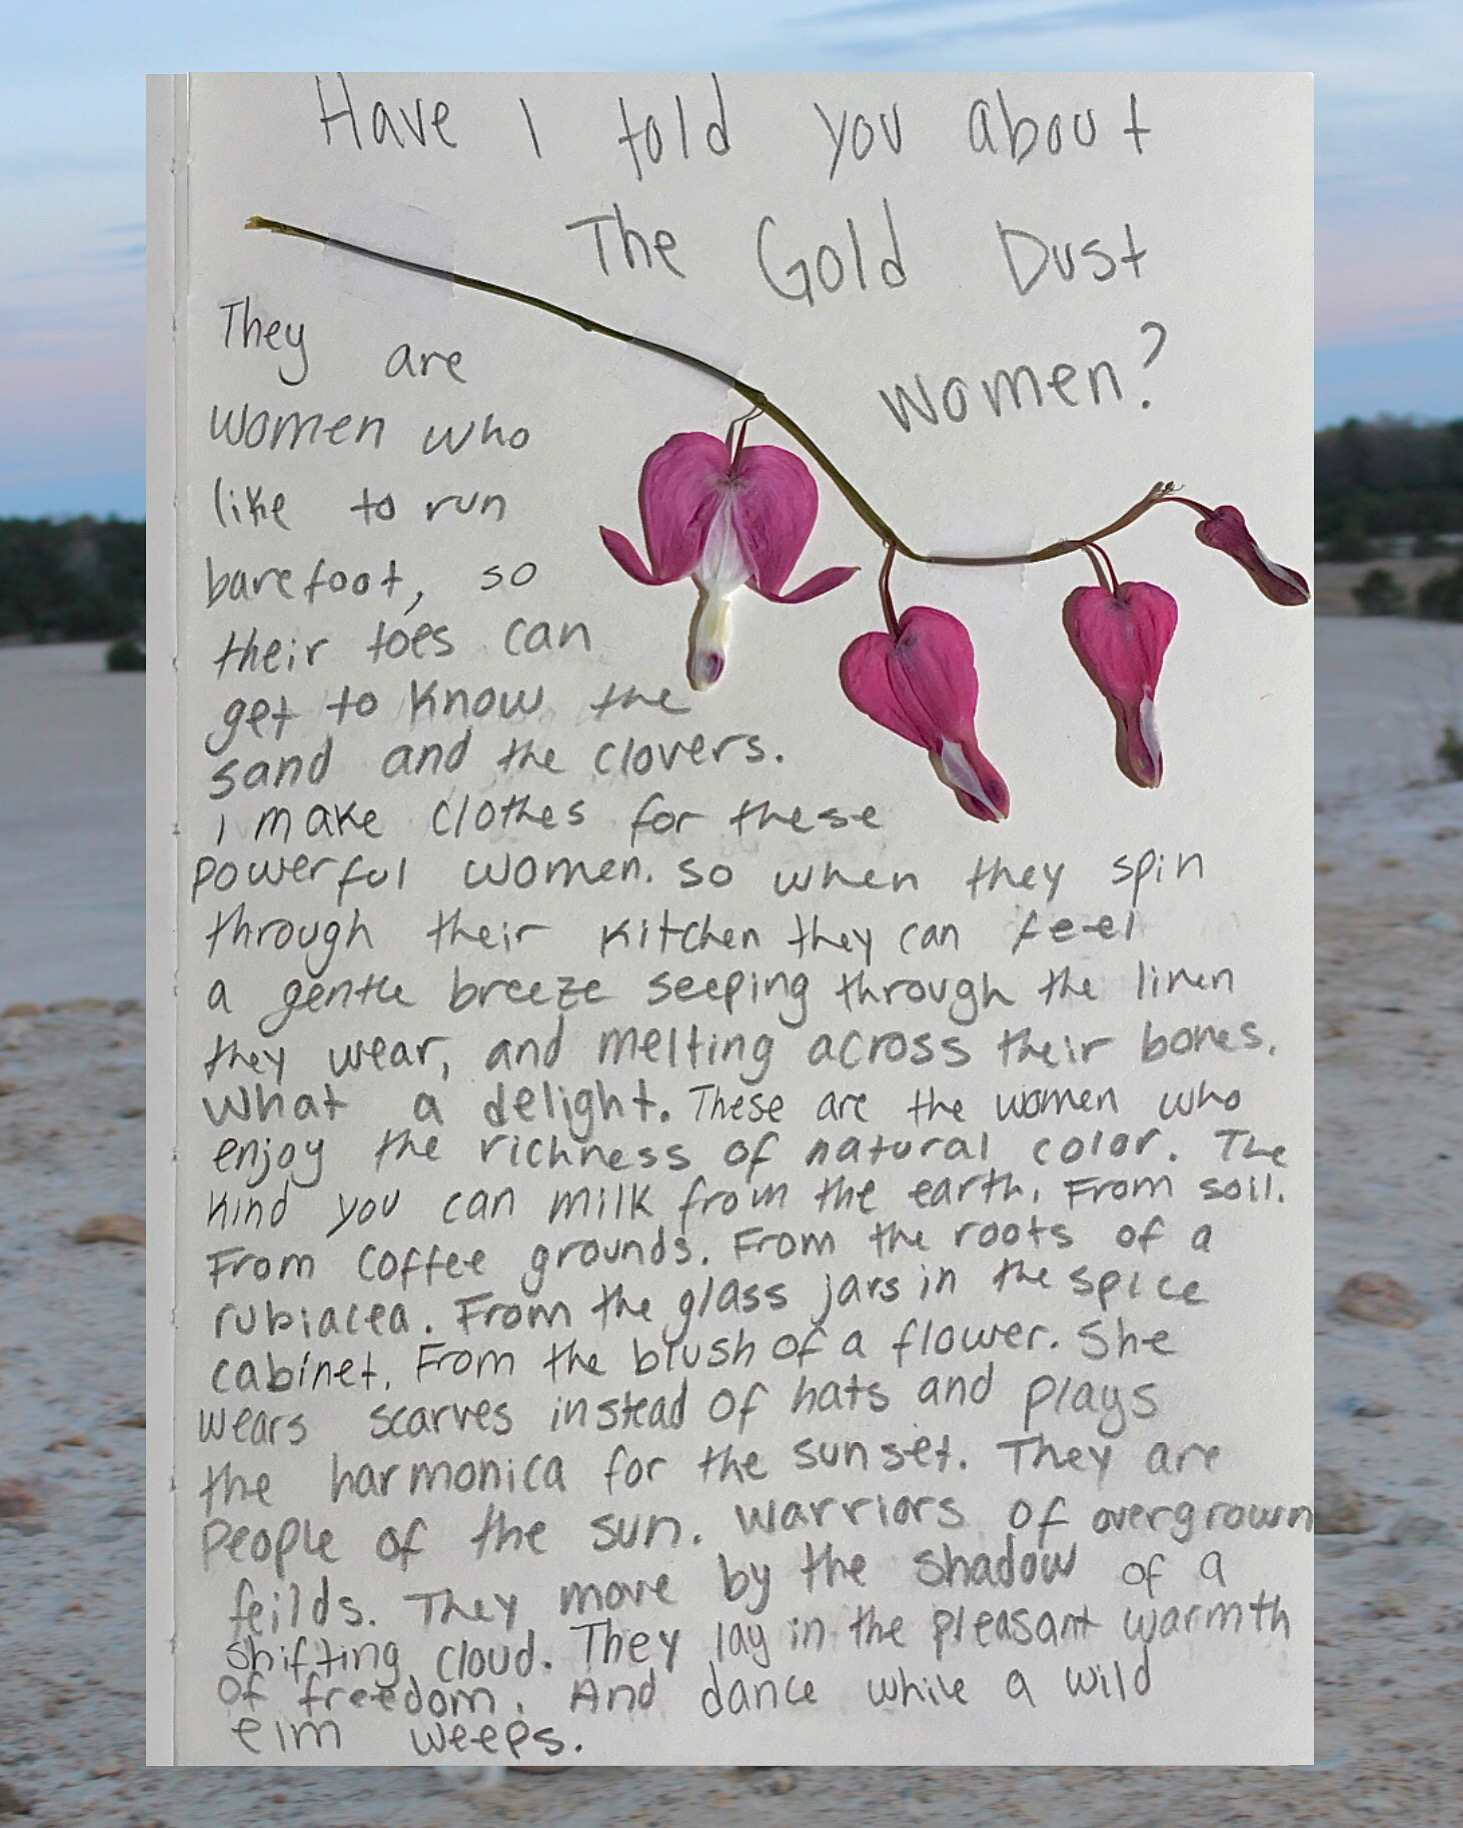 Have I told you about
The Gold Dust
women?
They are
women who
like to run
barefoot, so
their toes can
get to know the
sand and the clovers.
I make clothes for these
powerful women. so when they spin
through their kitchen they can feel
a gentle breeze seeping through the linen
they wear, and melting across their bones.
What a delight. These are the women who
enjoy the richness of natural color. The
kind you can milk from the earth. From soil.
From coffee grounds. From the roots of a
rubiacea. From the glass jars in the spice
cabinet. From the blush of a flower. She
wears scarves instead of hats and plays
the harmonica for the sunset. They are
people of the sun. Warriors of overgrown
feilds. They move by the shadow of a
shifting cloud. They lay in the pleasant warmth
of freedom. And dance while a wild
elm weeps.